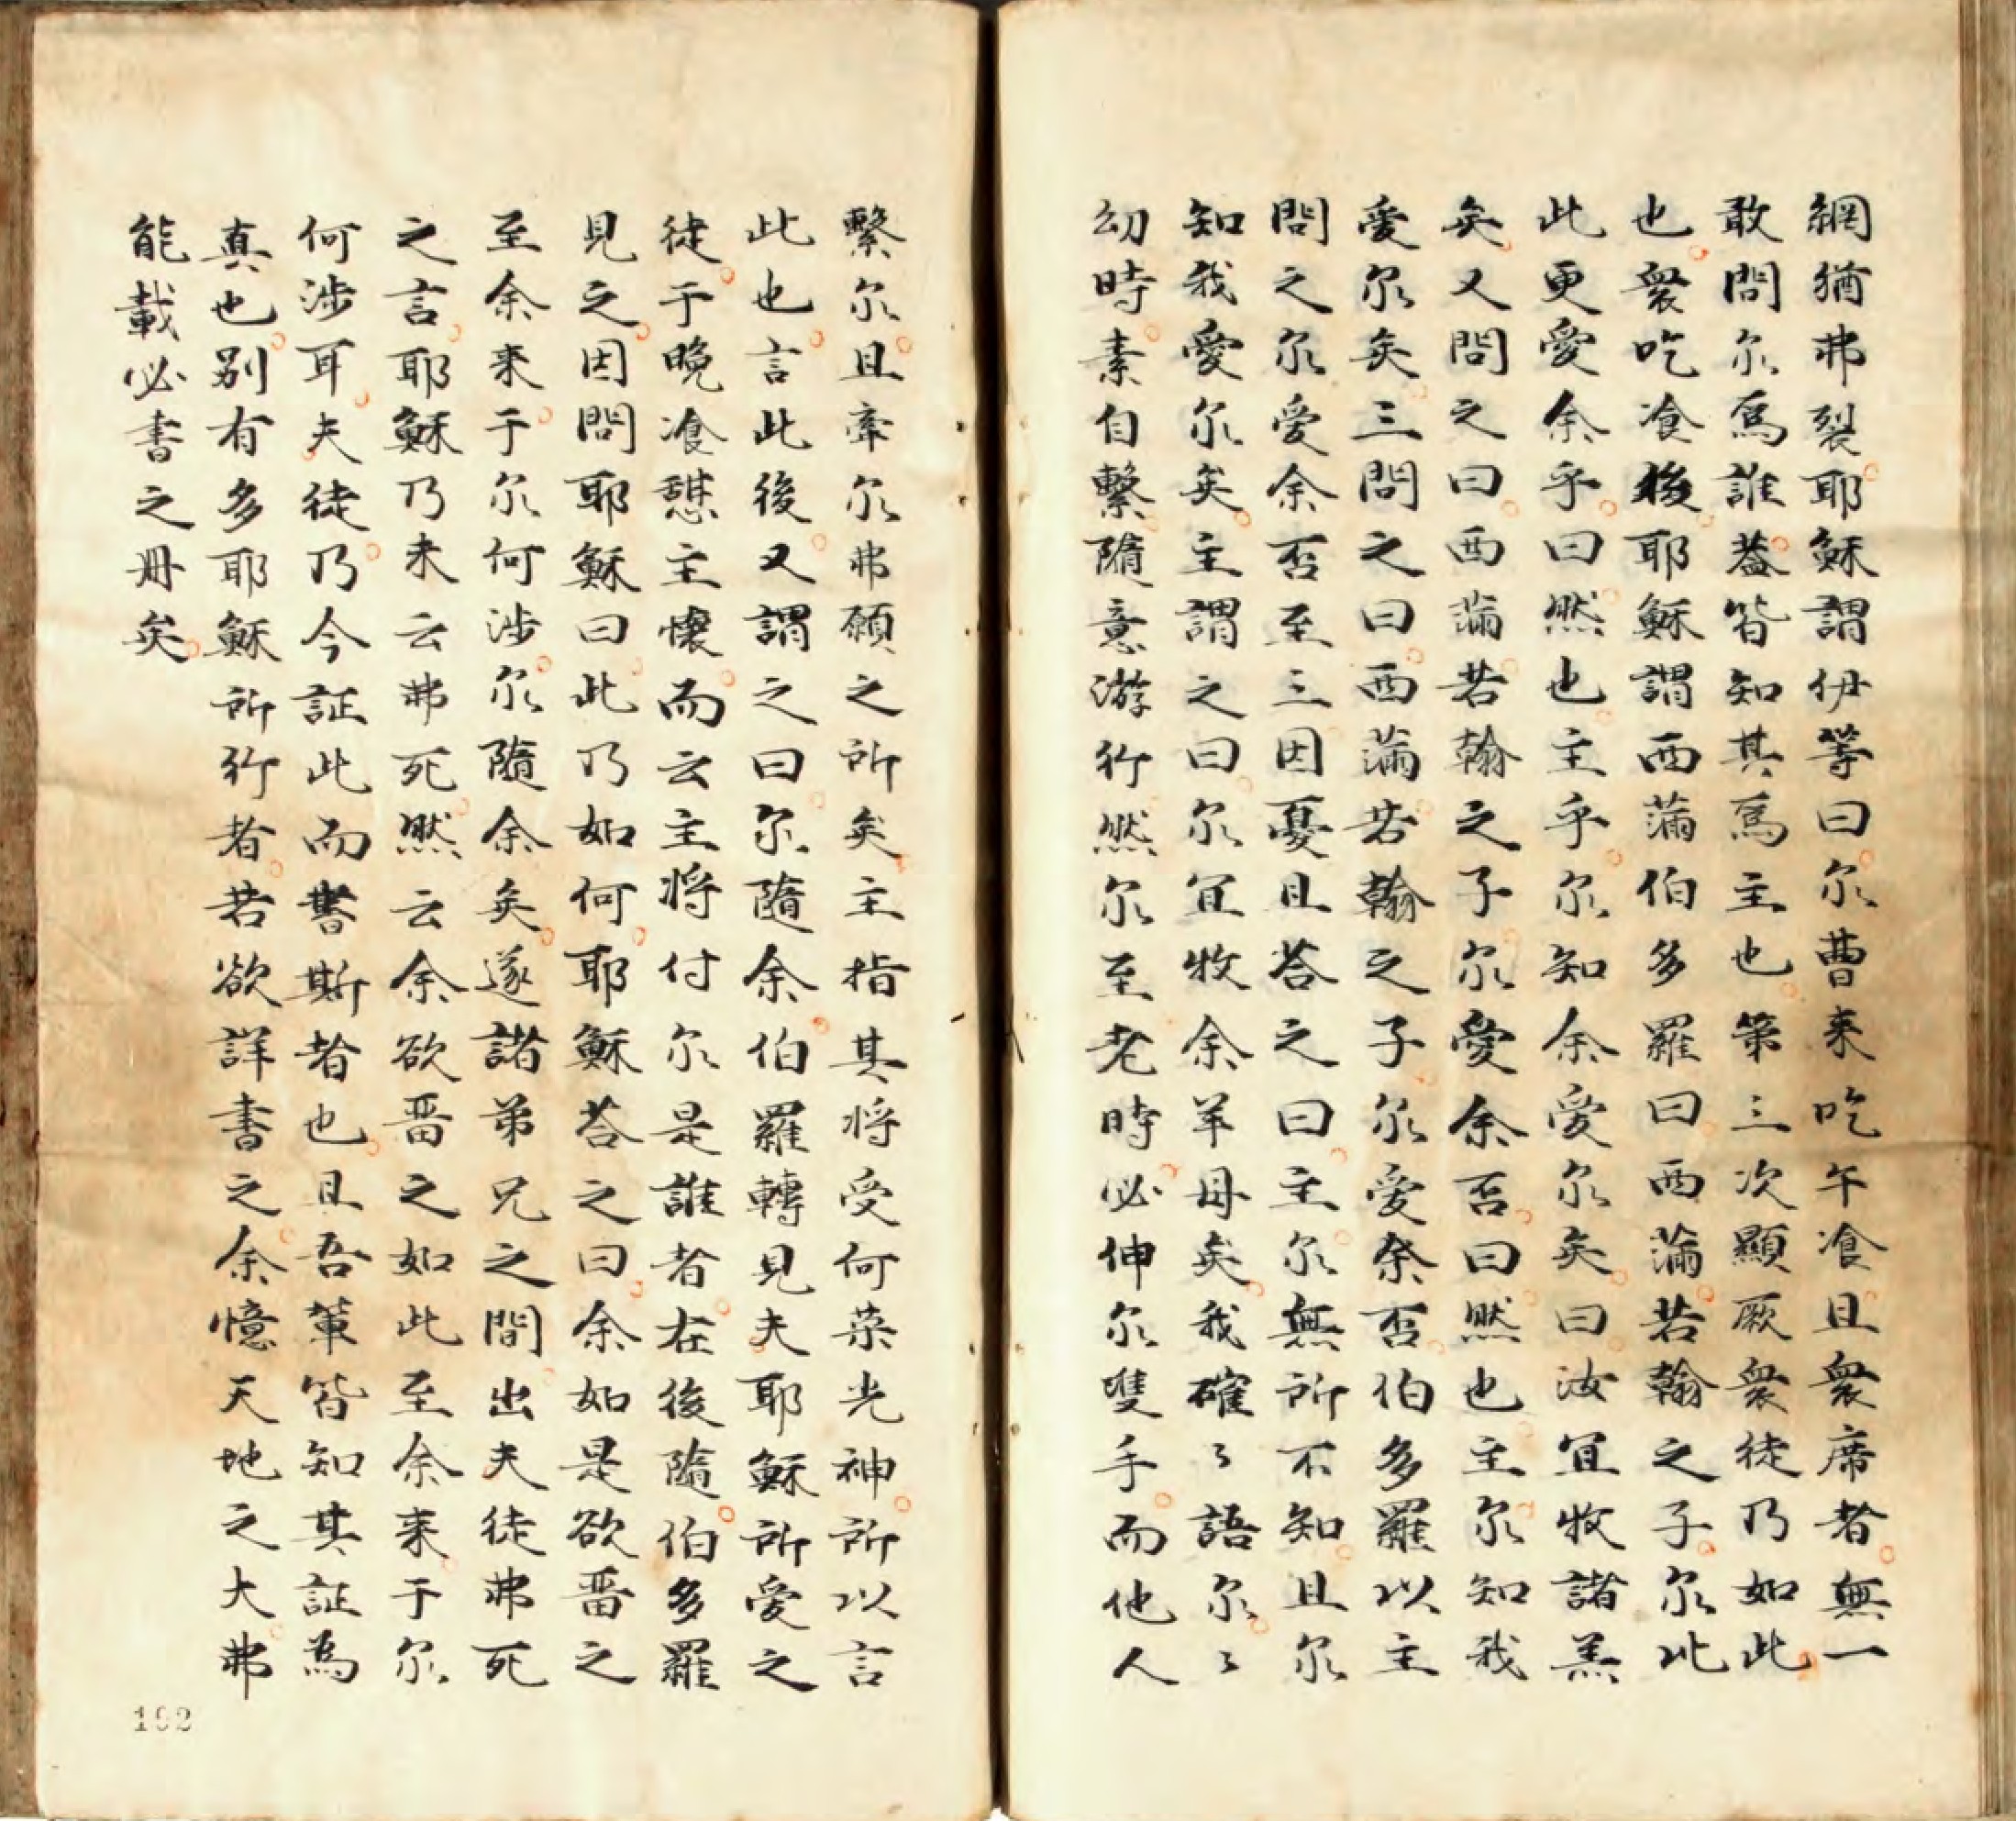 網猶弗裂耶穌謂伊等曰尔曹来吃午飡且衆席者無一
敢問尔爲誰葢皆知其爲主也第三次顯厥衆徒乃如此
也衆吃飡後耶穌謂西滿伯多羅曰西滿若翰之子尔比
此更愛余乎曰然也主乎尔知余愛尔矣曰汝宜牧諸羔
矣又問之曰西滿若翰之子尔愛余否曰然也主尔知我
愛尔矣三問之曰西滿若翰之子尔愛余否伯多羅以主
問之尔愛余否至三因憂且荅之曰主尔無所不知且尔
知我愛尔矣主謂之曰尔宜牧余羊母矣我確々語尔々
幼時素自繫隨意游行然尔至老時必伸尔雙手而他人
繫尔且牽尔弗願之所矣主指其将受何荣光神所以言
此也言此後又謂之曰尔隨余伯羅轉見夫耶穌所愛之
徒于晚飡憇主懷而云主将付尔是誰者在後隨伯多羅
見之因問耶穌曰此乃如何耶穌荅之曰余如是欲畱之
至余来于尔何涉尔隨余矣遂諸弟兄之間出夫徒弗死
之言耶穌乃未云弗死然云余欲畱之如此至余来于尔
何涉耳夫徒乃今証此而書斯者也且吾輩皆知其証為
真也别有多耶穌所行者若欲詳書之余憶天地之大弗
能載必書之册矣
192